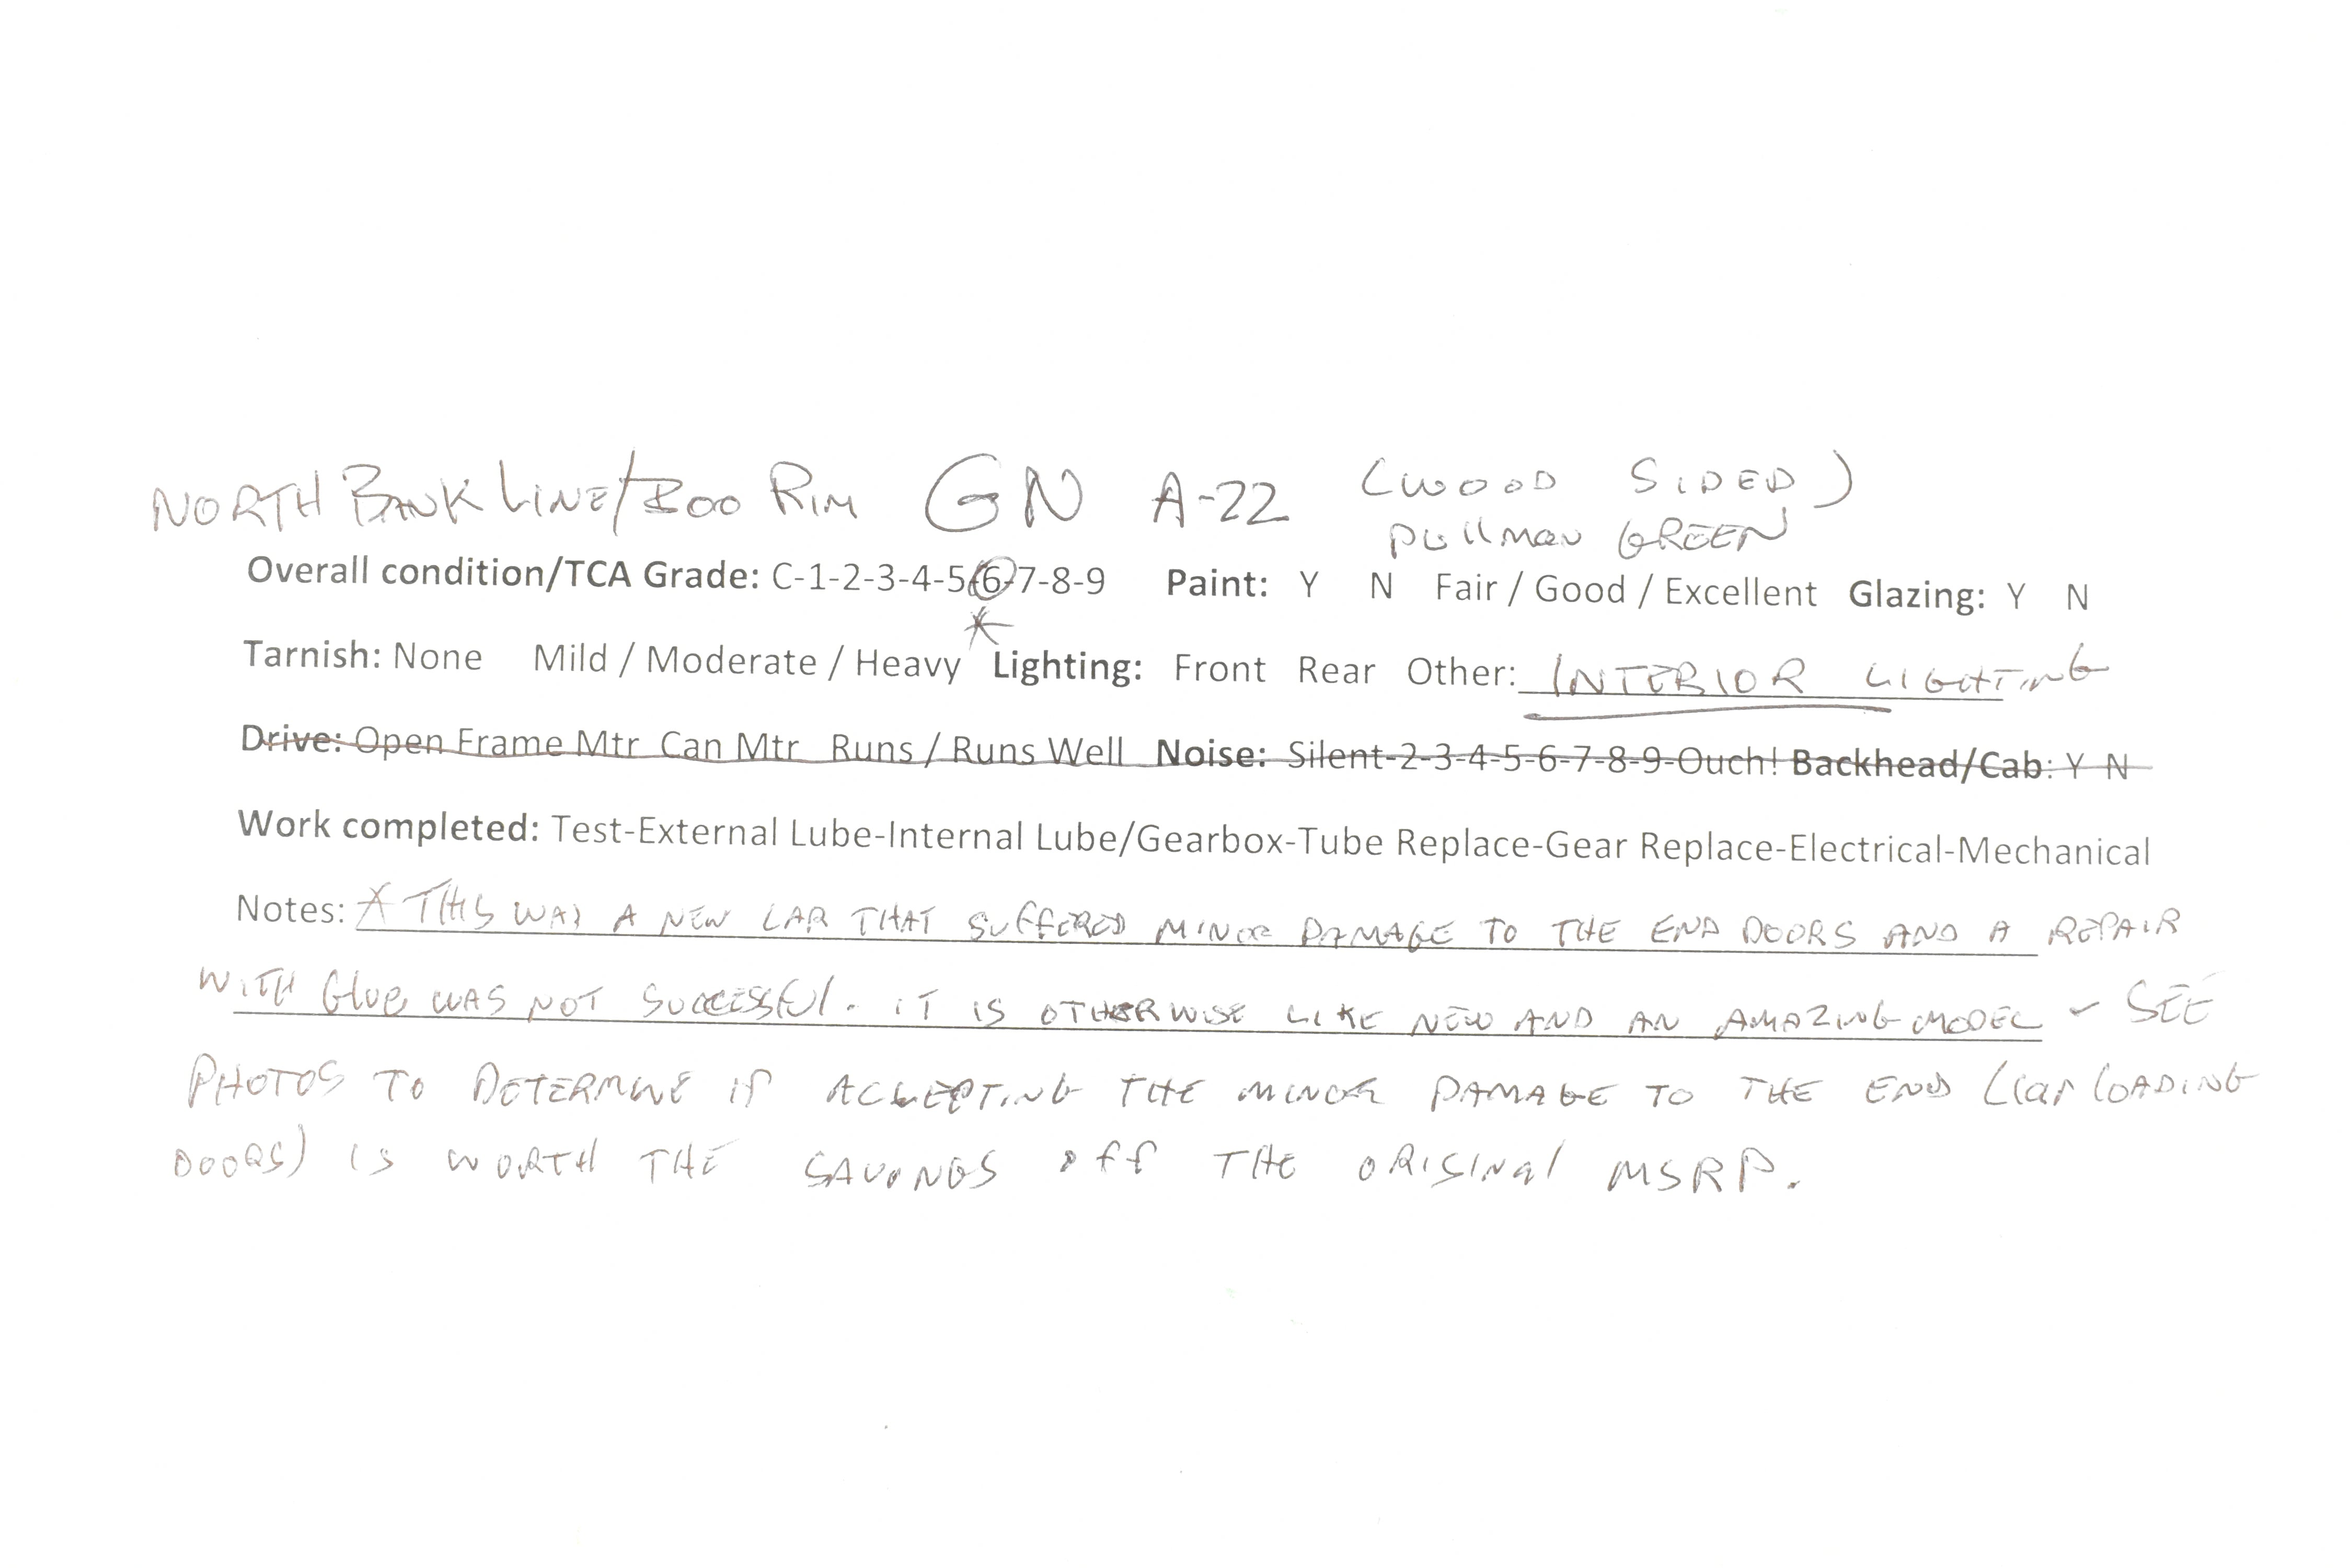 NORTH BANK LINE/BOO RIM GN A-22 (WOOD SIDED)
PullMAN GREEN
Overall condition/TCA Grade: C-1-2-3-4-5-6-7-8-9 Paint: Y N Fair / Good / Excellent Glazing: Y N
*
Tarnish: None Mild / Moderate / Heavy Lighting: Front Rear Other: INTERIOR LIGHTING
Drive: Open Frame Mtr Can Mtr Runs / Runs Well Noise: Silent-2-3-4-5-6-7-8-9-Ouch! Backhead/Cab: Y N
Work completed: Test-External Lube-Internal Lube/Gearbox-Tube Replace-Gear Replace-Electrical-Mechanical
Notes: * THIS WAS A NEW CAR THAT SUFFERED MINOR DAMAGE TO THE END DOORS AND A REPAIR
WITH Glue WAS NOT SUCCESSFUl. IT IS OTHERWISE LIKE NEW AND AN AMAZING MODEL - SEE
PHOTOS TO DETERMINE IF ACCEPTING THE MINOR DAMAGE TO THE END (Car LOADING
DOORS) IS WORTH THE SAVINGS OFF THE ORIGINAl MSRP.